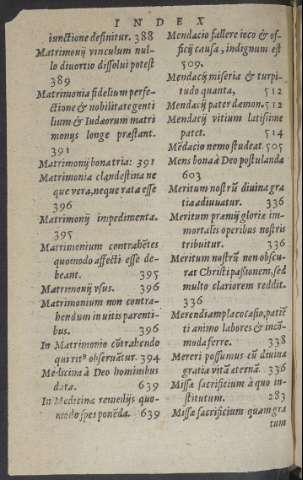 INDEX
iunctione definitur. 388
Matrimonij vinculum nul-
lo diuortio dissolui potest
389
Matrimonia fidelium perfe-
ctione & nobilitate genti
lium & Iudæorum matri
monijs longe præstant.
391
Matrimonij bona tria: 391
Matrimonia clandestina ne
que vera, neque rata esse
396
Matrimonij impedimenta.
395
Matrimenium contrahẽtes
quomodo affecti esse de-
beant. 395
Matrimonij vsus. 396
Matrimonium non contra-
hendum inuitis parenti-
bus. 396
In Matrimonio cõtrahendo
qui rit⁹ obseruãtur. 394
Medicina à Deo hominibus
data. 639
In Medicina remedijs quo-
modo spes ponẽda. 639
Mendacio fallere ioco & of-
ficij causa, indignum est
509.
Mendacij miseria & turpi-
tudo quanta, 512
Mendacij pater dæmon. 512
Mendacij vitium latissime
patet. 514
Mẽdacio nemo studeat. 505
Mens bona à Deo postulanda
603
Meritum nostrũ diuina gra
tia adiuuatur. 336
Meritum præmij gloriæ im-
mortalis operibus nostris
tribuitur. 336
Meritum nostrũ non obscu-
rat Christi passionem, sed
multo clariorem reddit.
336
Merendi amplæ occasio, patiẽ
ti animo labores & incõ-
moda ferre. 338
Mereri possumus cũ diuina
gratia vitã æternã. 336
Missæ sacrificium à quo in-
stitutum. 283
Missæ sacrificium quam gra
tum